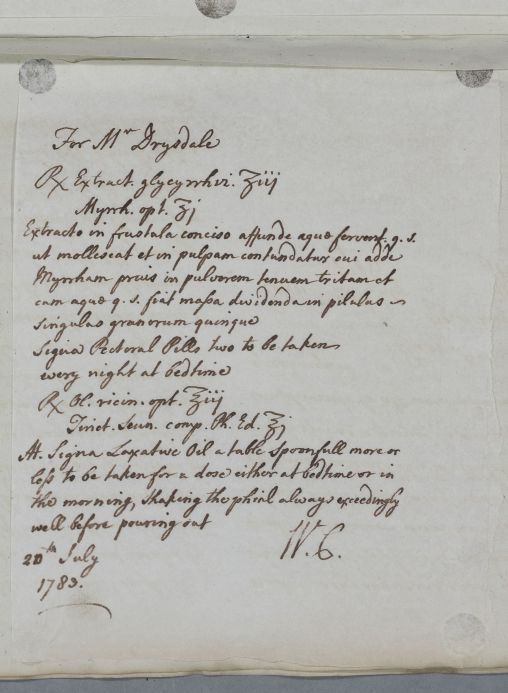 For Mr Drysdale
℞ Extract. glycyrrhiz. ʒiij
Myrrh. opt. ʒj
Extracto in frustula conciso affunde aquæ fervent. q. s.
ut mollescat et in pulpam contundatur cui adde
Myrrham prius in pulverem tenuem tritam et
cum aquæ q. s. fiat massa dividenda in pilulas
singulas granorum quinque
Signa Pectoral Pills two to be taken
every night at bedtime
℞ Ol. ricin. opt. ʒiij
Tinct. Senn. comp. Ph. Ed. ʒj
M. Signa Laxative Oil a table spoonfull more or
less to be taken for a dose either at bedtime or in
the morning, shaking the phial always exceedingly
well before pouring out
W. C.
20th July
1783.